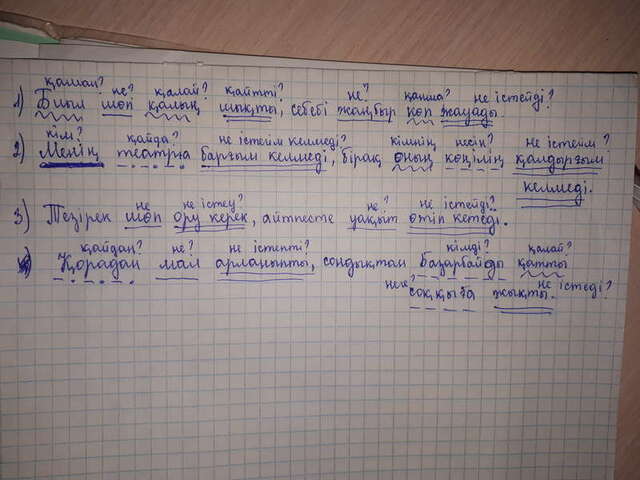 қашан? не? қалай? қайтті? не? қанша? не істейді?
1) Биыл шөп қалың шықты, себебі жаңбыр көп жауады.
кім? қайда? не істейім келмеді? кімнің несін? не істейім?
2) Менің театрға барғым келмеді, бірақ оның көңілін қалдырғым
келмеді.
не не істеу? не? не істейді?
3) Тезірек шөп ору керек, әйтпесте уақыт өтіп кетеді.
қайдан? не? не істепті? кімді? қалай?
Қорадан мал арланыпты, сондықтан Базарбайды қатты
не істеді?
соққыға жықты.